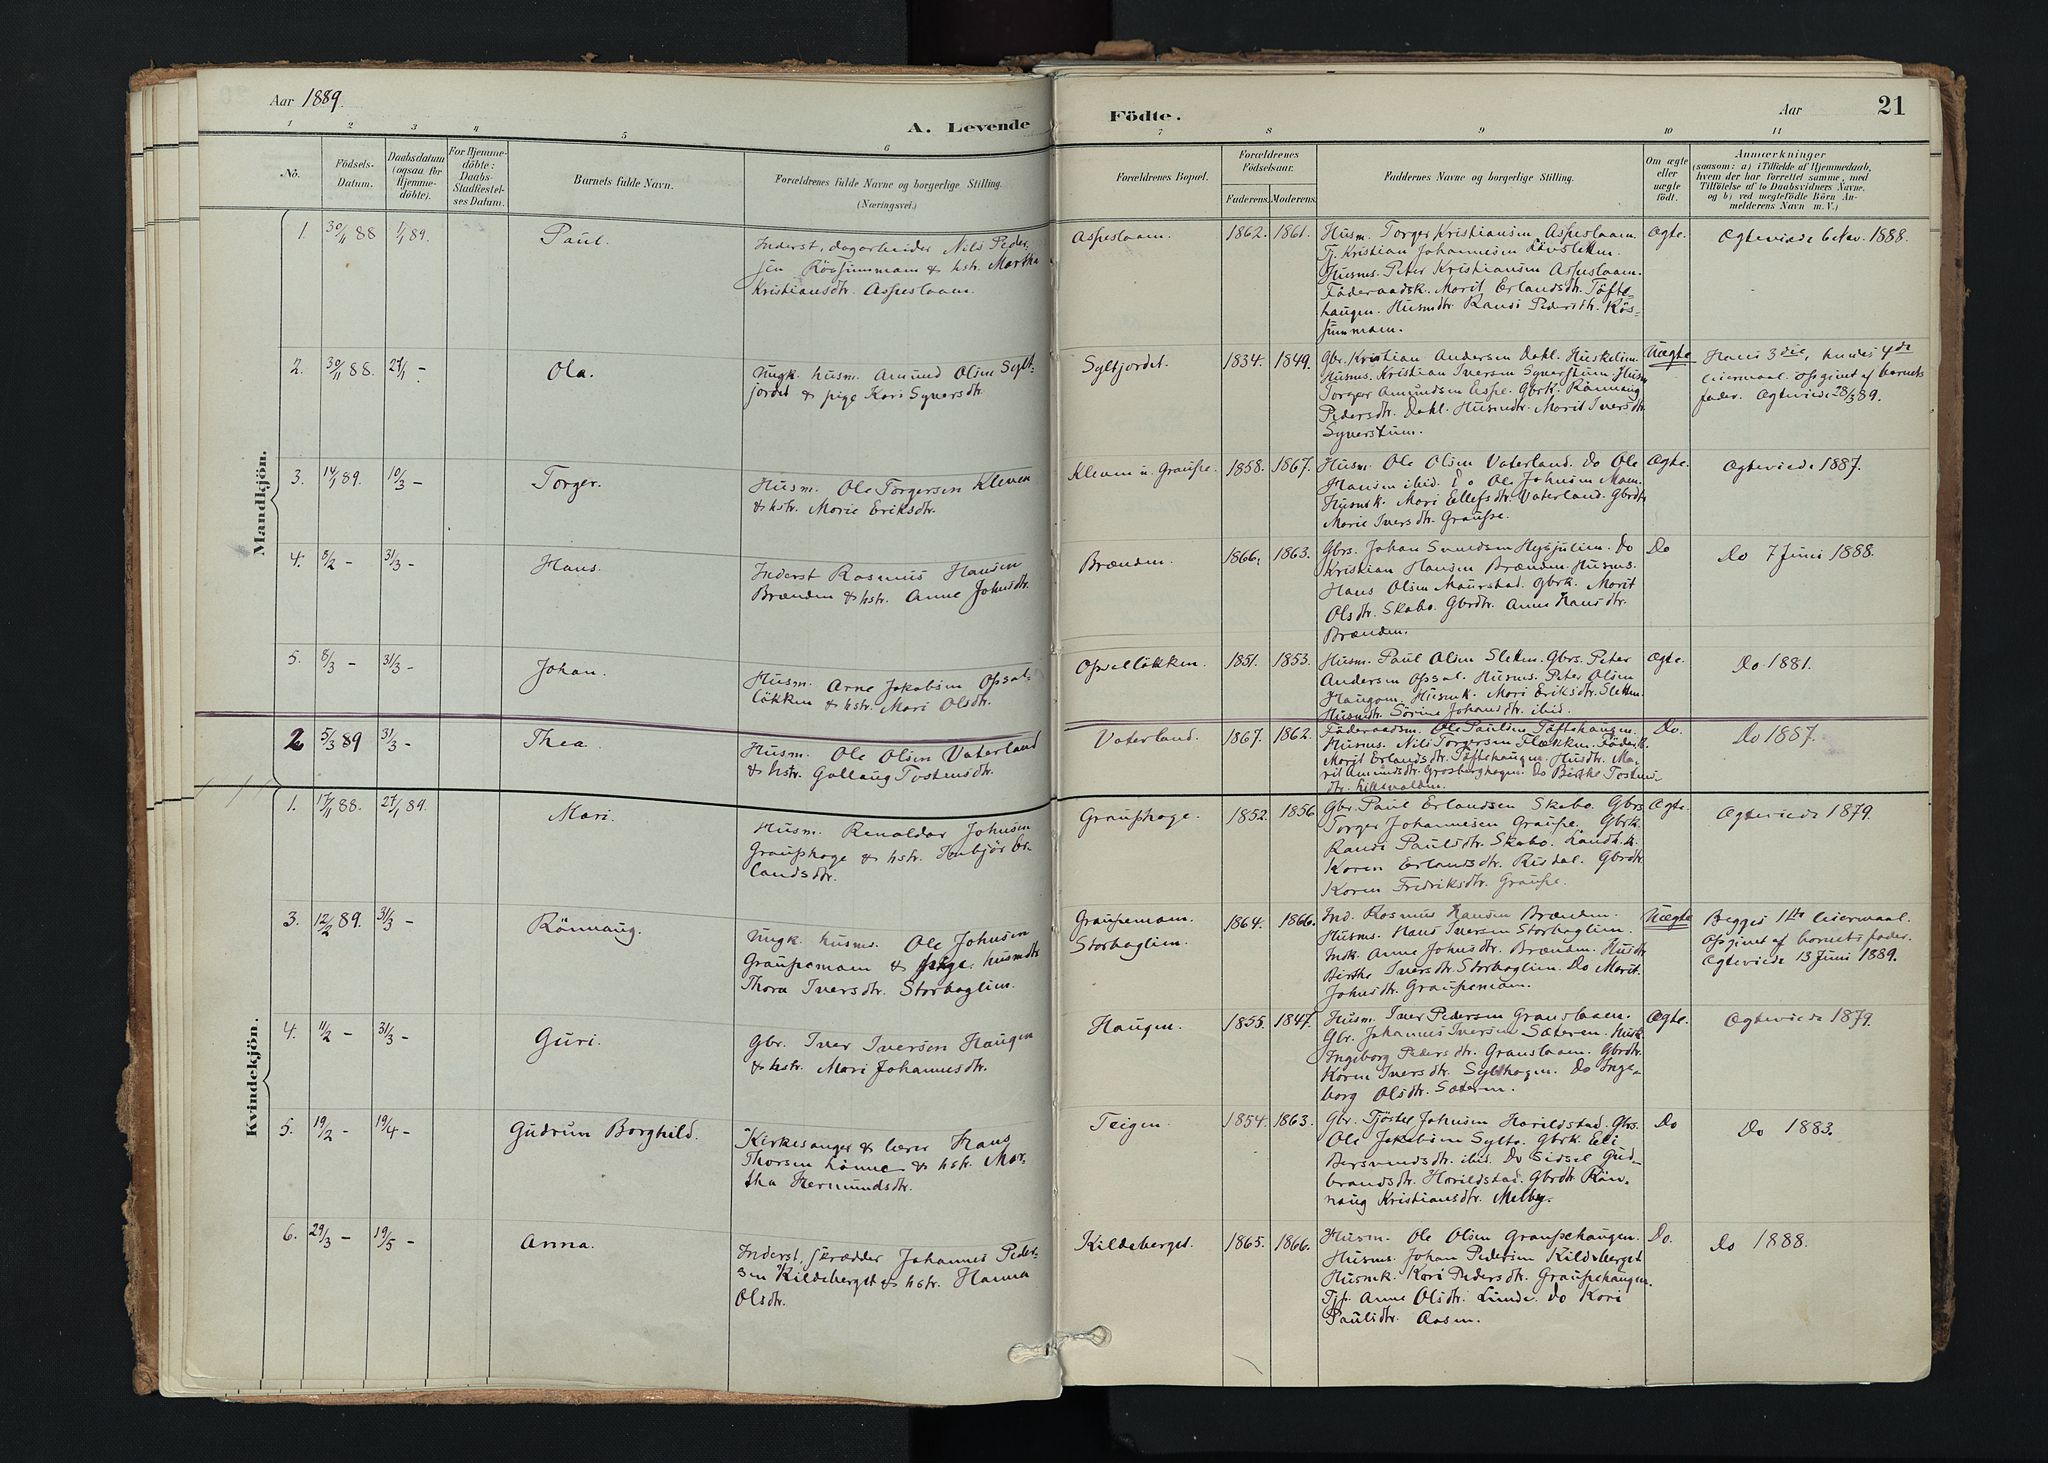 Aar 1889.
A. Levende
Födte.
Aar
21
1 2 3 4 5 6 7 8 9 10 11
No.
Födsels-
Datum.
Daabsdatum
(ogsaa for
Hjemme-
döbte).
For Hjemme-
döbte:
Daabs-
Stadfæstel-
ses Datum.
Barnets fulde Navn.
Forældrenes fulde Navne og borgerlige Stilling.
(Næringsvei.)
Forældrenes Bopæl.
Forældrenes
Födselsaar.
Faderens.
Moderens.
Faddernes Navne og borgerlige Stilling.
Om ægte
eller
uægte
födt.
Anmærkninger
(saasom: a) i Tilfælde af Hjemmedaab,
hvem der har forrettet samme, med
Tilföielse af to Daabsvidners Navne,
og b) ved uægtefödte Börn An-
melderens Navn m. V.)
Mandkjön.
1. 30/11 88 1/1 89. Paul.
Inderst, dagarbeider Nils Peder-
sen Rössummoen & hstr. Martha
Kristiansdtr. Aspeslaaen.
Aspeslaaen. 1862. 1861.
Husm. Torger Kristiansen Aspeslaaen.
Tj. Kristian Johannesen Lövsletten.
Husms. Peter Kristiansen Aspeslaaen.
Föderaadsk. Marit Erlandsdtr. Töfte-
haugen. Husmdtr Randi Pedersdtr. Rös-
summoen.
Ægte. Ægteviede 6 Nov. 1888.
2. 30/11 88. 27/1 – Ola.
Ungk. husm. Amund Olsen Sylt-
jordet & pige Kari Syversdtr.
Syltjordet. 1834. 1849.
Gbr. Kristian Andersen Dahl. Huskelien.
Husms. Kristian Iversen Syverstuen. Husm
Torger Amundsen Espe. Gbrk. Rönnaug
Pedersdtr. Dahl. Husmdtr. Marit Iversdtr
Syverstuen.
Uægte
Hans 3die, hendes 4de
leiermaal. Opgivet af barnets
fader. Ægteviede 28/3 89.
3. 14/1 89. 10/3 – Torger.
Husm. Ole Torgersen Kleven
& hstr. Marie Eriksdtr.
Kleven u. Graupe. 1858. 1867.
Husm. Ole Olsen Vaterland. Do Ole
Hansen ibid. Do Ole Johnsen Moen.
Husmk. Mari Ellefsdtr. Vaterland. Gbrdtr
Marie Iversdtr. Graupe.
Ægte. Ægteviede 1887.
4. 8/2 – 31/3 – Hans.
Inderst Rasmus Hansen
Brænden & hstr. Anne Johnsdtr.
Brænden. 1866. 1863.
Gbrs. Johan Svendsen Hysjulien. Do
Kristian Hansen Brænden. Husms.
Hans Olsen Maurstad. Gbrk. Marit
Olsdtr. Skabo. Gbrdtr. Anne Hansdtr.
Brænden.
Do Do 7 Juni 1888.
5. 8/3 – 31/3 – Johan.
Husm. Arne Jakobsen Opsal-
lökken & hstr. Mari Olsdtr.
Opsallökken. 1851. 1853.
Husm. Paul Olsen Sletten. Gbrs. Peter
Andersen Opsal. Husms. Peter Olsen
Haugom. Husmk. Mari Eriksdtr. Sletten.
Husmdtr. Sörine Johansdtr. ibid.
Ægte. Do 1881.
2 5/3 89 31/3 – Thea.
Husm. Ole Olsen Vaterland
& hstr. Gollaug Tostensdtr.
Vaterland. 1867. 1862.
Föderaadsm. Ole Paulsen Töftehaugen.
Husms. Nils Torgersen Flækken. Föderk.
Marit Erlandsdtr. Töftehaugen. Husdtr. Ma-
rit Amundsdtr. Grosberghagen. Do Birthe Tostens-
dtr.
Do. Do 1887.
Kvindekjön.
1. 17/11 88. 27/1 89. Mari.
Husm. Renaldar Johnsen
Grauphage & hstr. Herbjör Er-
landsdtr.
Grauphage. 1852. 1856
Gbr. Paul Erlandsen Skabo. Gbrs
Torger Johannesen Graupe. Gbrk.
Randi Paulsdtr. Skabo. Landh.k.
Karen Erlandsdtr. Risdal. Gbrdtr
Karen Fredriksdtr. Graupe.
Ægte. Ægteviede 1879.
3. 12/2 89. 31/3 – Rönnaug.
Ungk. husms. Ole Johnsen
Graupemoen & pige husmdtr
Thora Iversdtr. Storbaglien.
Graupemoen.
Storbaglien. 1864. 1866.
Ind. Rasmus Hansen Brænden.
Husms. Hans Iversen Storbaglien.
Indk. Anne Johnsdtr. Brænden. Husdtr
Birthe Iversdtr. Storbaglien. Do Marit
Johnsdtr. Graupemoen.
Uægte
Begges 1ste leiermaal.
Opgivet af barnets fader.
Ægteviede 13 Juni 1889.
4. 11/2 – 31/3 – Guri.
Gbr. Iver Iversen Haugen
& hstr. Mari Johannesdtr.
Haugen. 1855. 1847.
Husm. Iver Pedersen Granslaaen.
Gbr. Johannes Iversen Sæteren. Husk.
Ingeborg Pedersdtr. Granslaaen. Gbrdtr.
Karen Iversdtr. Sylthagen. Do Inge-
borg Olsdtr. Sæteren.
Ægte. Ægteviede 1879.
5. 19/2 – 19/4 – Gudrun Borghild.
Kirkesanger & lærer Hans
Thorsen Lönne & hstr. Mar-
tha Hermundsdtr.
Teigen. 1854. 1863.
Gbr. Tjöstel Johnsen Harildstad. Gbrs.
Ole Jakobsen Sylte. Gbrk. Eli
Bersvendsdtr. ibid. Do Sidsel Gud-
brandsdtr. Harildstad. Gbrdtr Rön-
naug Kristiansdtr. Melby.
Do Do 1883.
6. 29/3 – 19/5 – Anna.
Inderst, skrædder Johannes Peder-
sen Kildeberget & hstr. Hanna
Olsdtr.
Kildeberget. 1865. 1866.
Husm. Ole Olsen Graupehaugen.
Husms. Johan Pedersen Kildeberget
Husmk. Kari Pedersdtr. Graupehaugen.
Tjp. Anne Olsdtr. Lunde. Do Kari
Paulsdtr. Aasen.
Do. Do 1888.